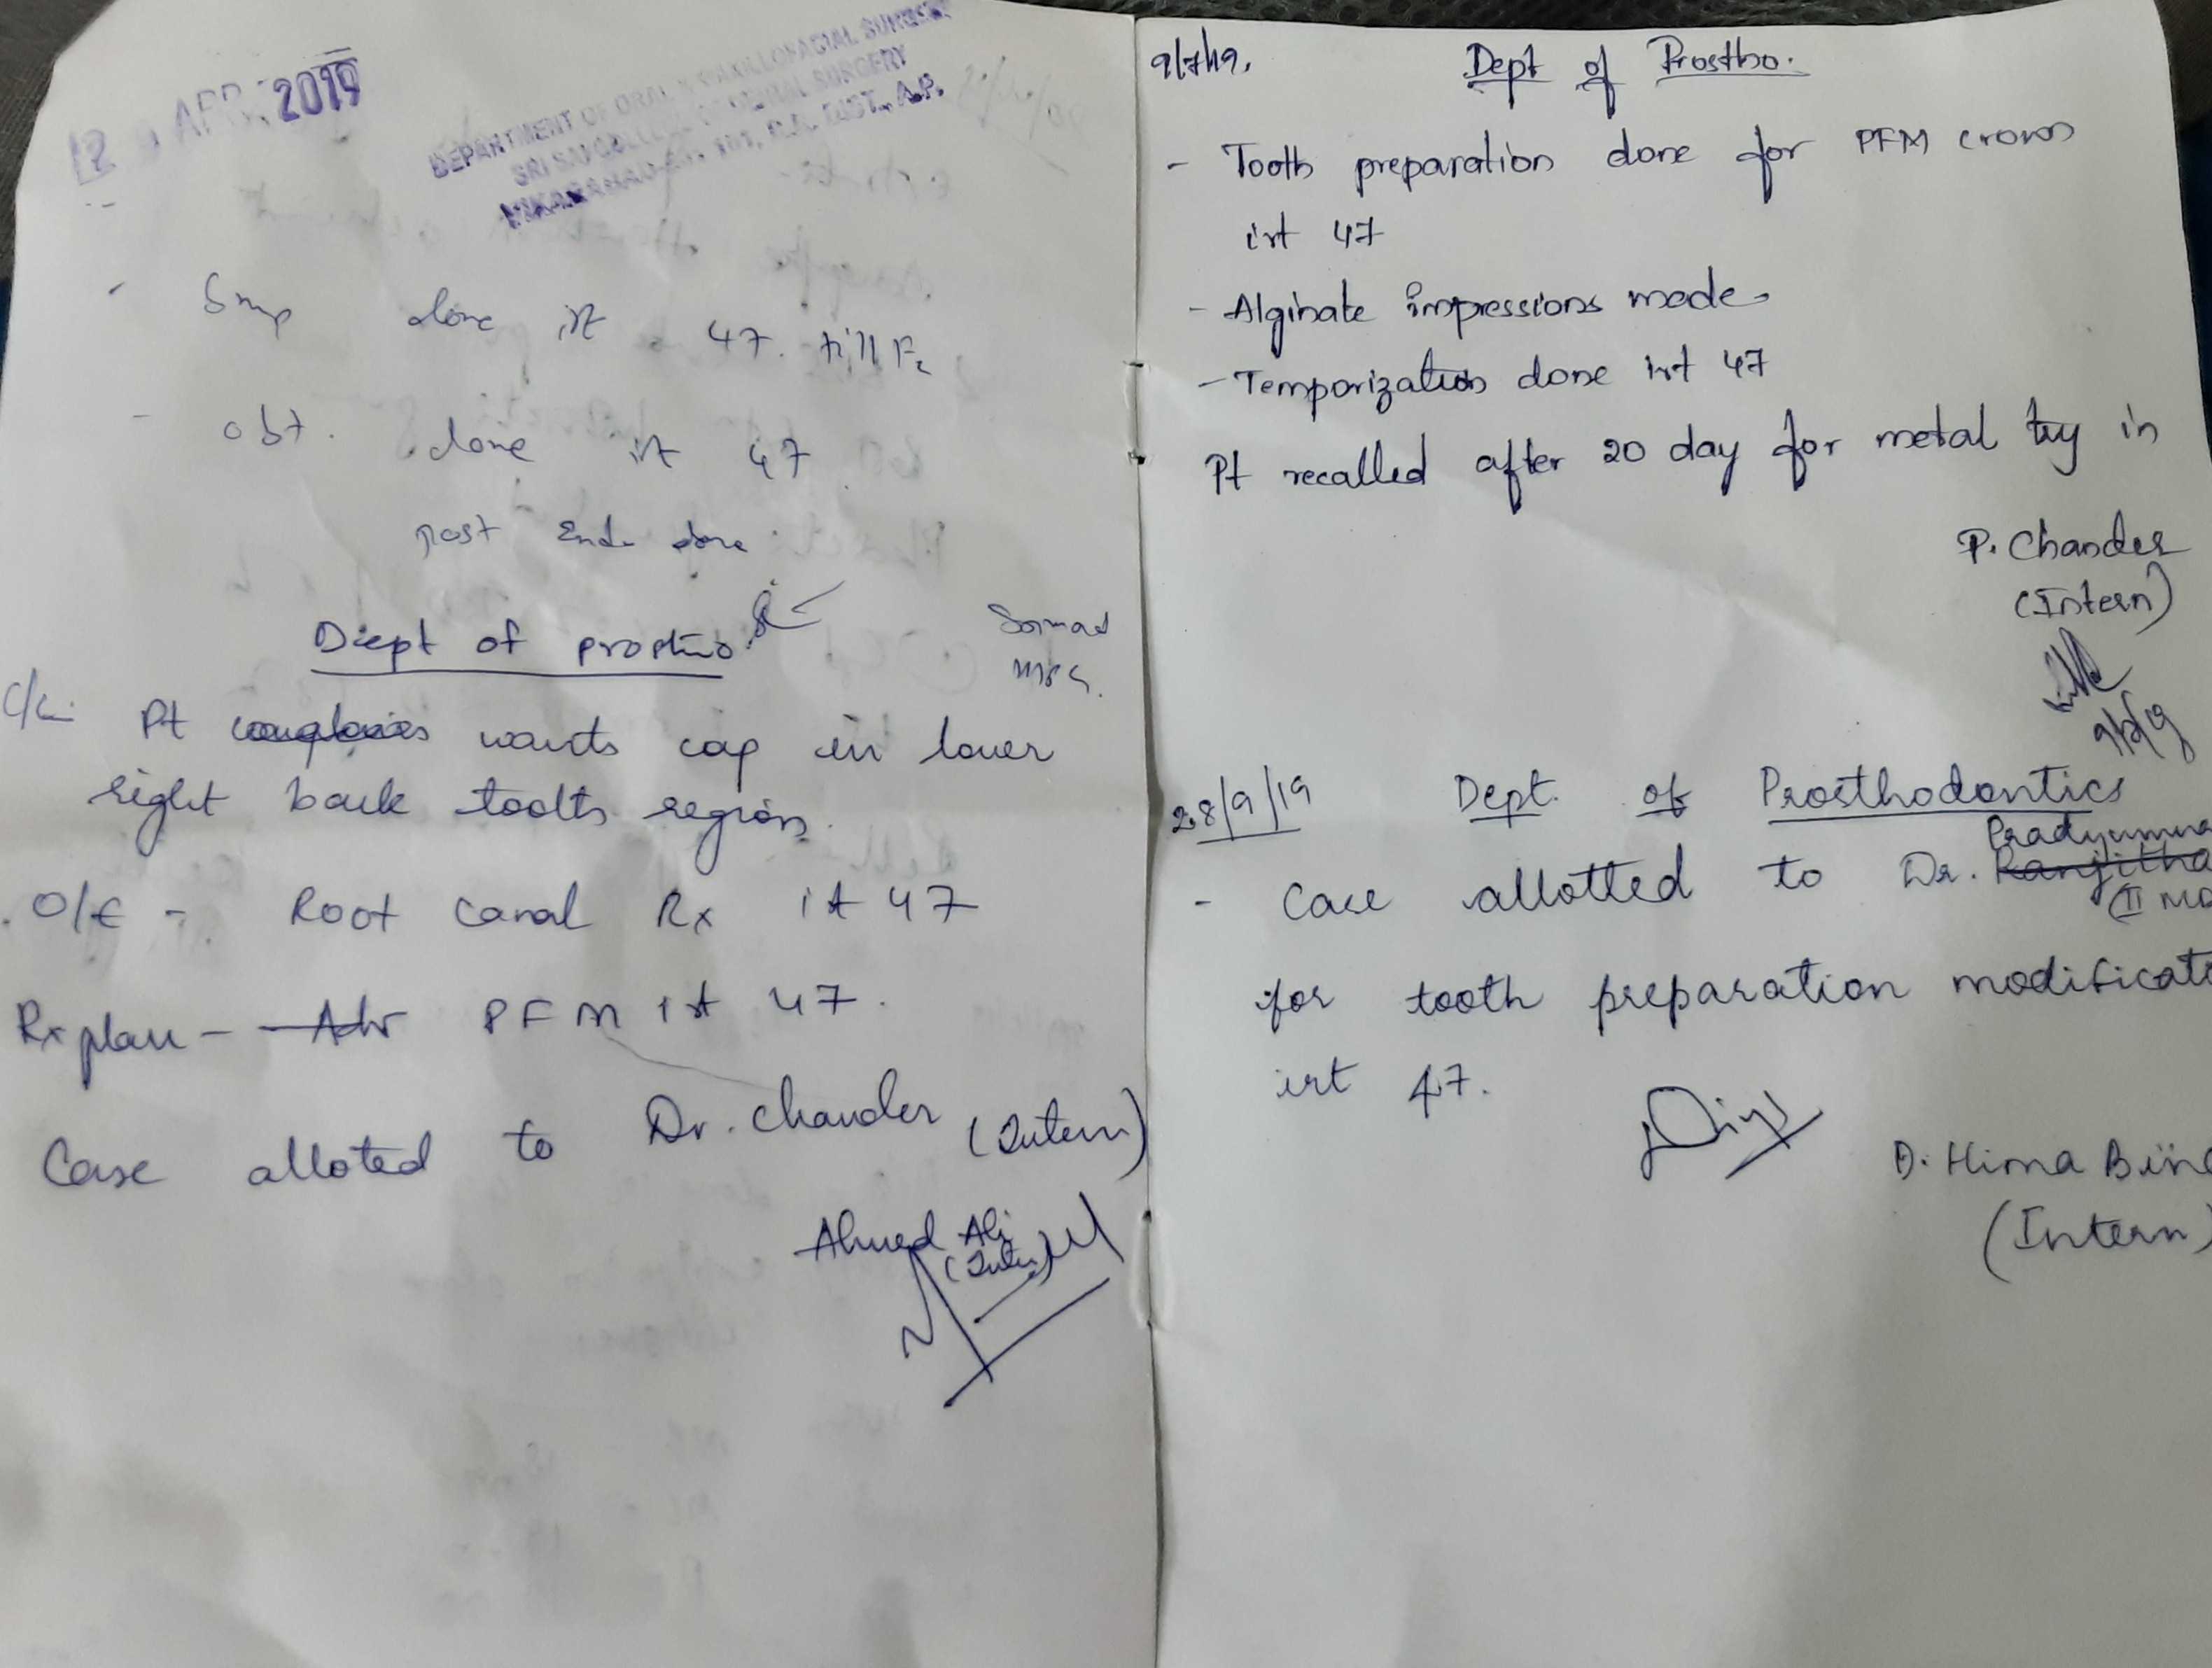 APR 2019
DEPARTMENT OF ORAL & MAXILLOFACIAL SURGERY
SRI SAI COLLEGE OF DENTAL SURGERY
VIKARABAD R.R. DIST., A.P.
- Bmp done irt 47. till F2
- obt. done irt 47
post Endo done
Dept of prostho
C/c Pt wants cap in lower
right back tooth region.
O/E - Root canal Rx irt 47
Rx plan - PFM irt 47.
Case alloted to Dr. Chander (Intern)
Ahmed Ali
(Intern)
9/7/19. Dept of Prostho.
- Tooth preparation done for PFM crown
irt 47
- Alginate impressions made
- Temporization done irt 47
Pt recalled after 20 day for metal try in
P. Chander
(Intern)
28/9/19 Dept. of Prosthodontics
Pradyumna
- Case allotted to Dr. Ranjitha
(II
for tooth preparation modificati
irt 47.
D. Hima Bin
(Intern)